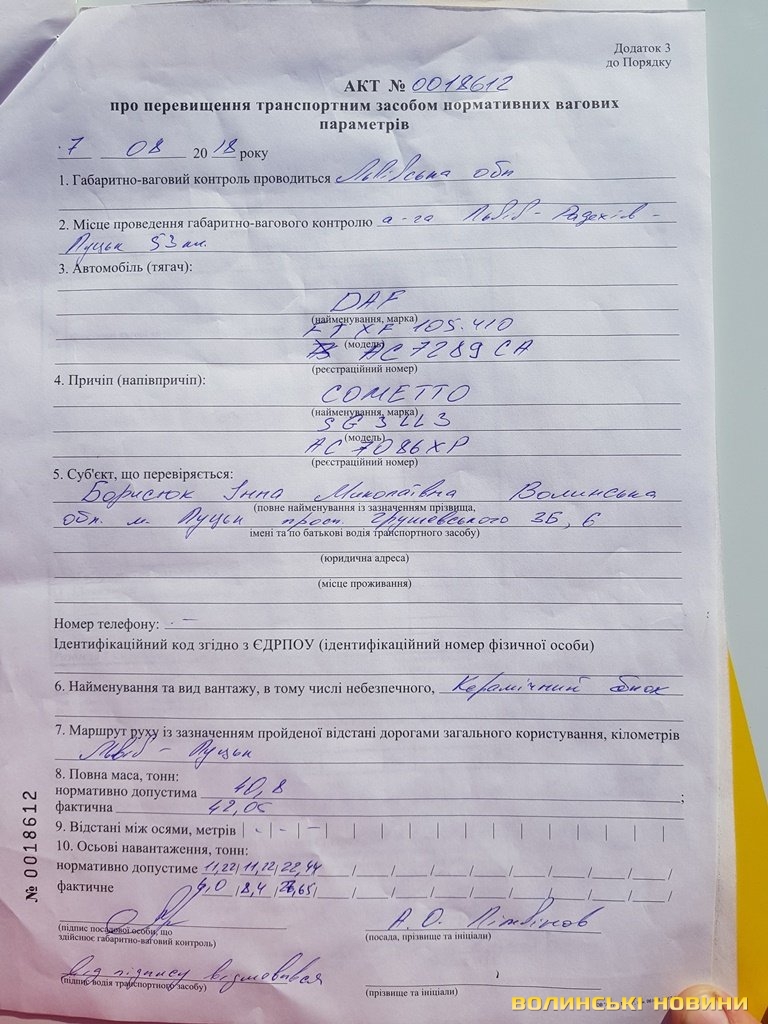 Додаток 3
до Порядку
АКТ № 0018612
про перевищення транспортним засобом нормативних вагових
параметрів
7 08 2018 року
1. Габаритно-ваговий контроль проводиться Львівська обл
2. Місце проведення габаритно-вагового контролю а-га Львів - Радехів -
Луцьк 53 км.
3. Автомобіль (тягач):
DAF
(найменування, марка)
FT XF 105.410
(модель)
AC 7289 CA
(реєстраційний номер)
4. Причіп (напівпричіп):
COMETTO
(найменування, марка)
SG 3 LL3
(модель)
AC 7086 XP
(реєстраційний номер)
5. Суб'єкт, що перевіряється:
Борисюк Інна Миколаївна Волинська
(повне найменування із зазначенням прізвища,
обл. м. Луцьк просп. Грушевського 3Б, 6
імені та по батькові водія транспортного засобу)
(юридична адреса)
(місце проживання)
Номер телефону: -
Ідентифікаційний код згідно з ЄДРПОУ (ідентифікаційний номер фізичної особи)
6. Найменування та вид вантажу, в тому числі небезпечного, Керамічний блок
7. Маршрут руху із зазначенням пройденої відстані дорогами загального користування, кілометрів
Львів - Луцьк
8. Повна маса, тонн:
нормативно допустима 40,8 ;
фактична 42,05
9. Відстані між осями, метрів | - | - | - | | | | | | | | |
10. Осьові навантаження, тонн:
нормативно допустиме 11,22/11,22/22,44 / / / / / / / /
фактичне 6,0 /8,4 / 26,65/ / / / / / / / /
(підпис посадової особи, що
здійснює габаритно-ваговий контроль)
А. О. Літвінов
(посада, прізвище та ініціали)
Від підпису відмовився
(підпис водія транспортного засобу)
(прізвище та ініціали)
№ 0018612
ВОЛИНСЬКІ НОВИНИ